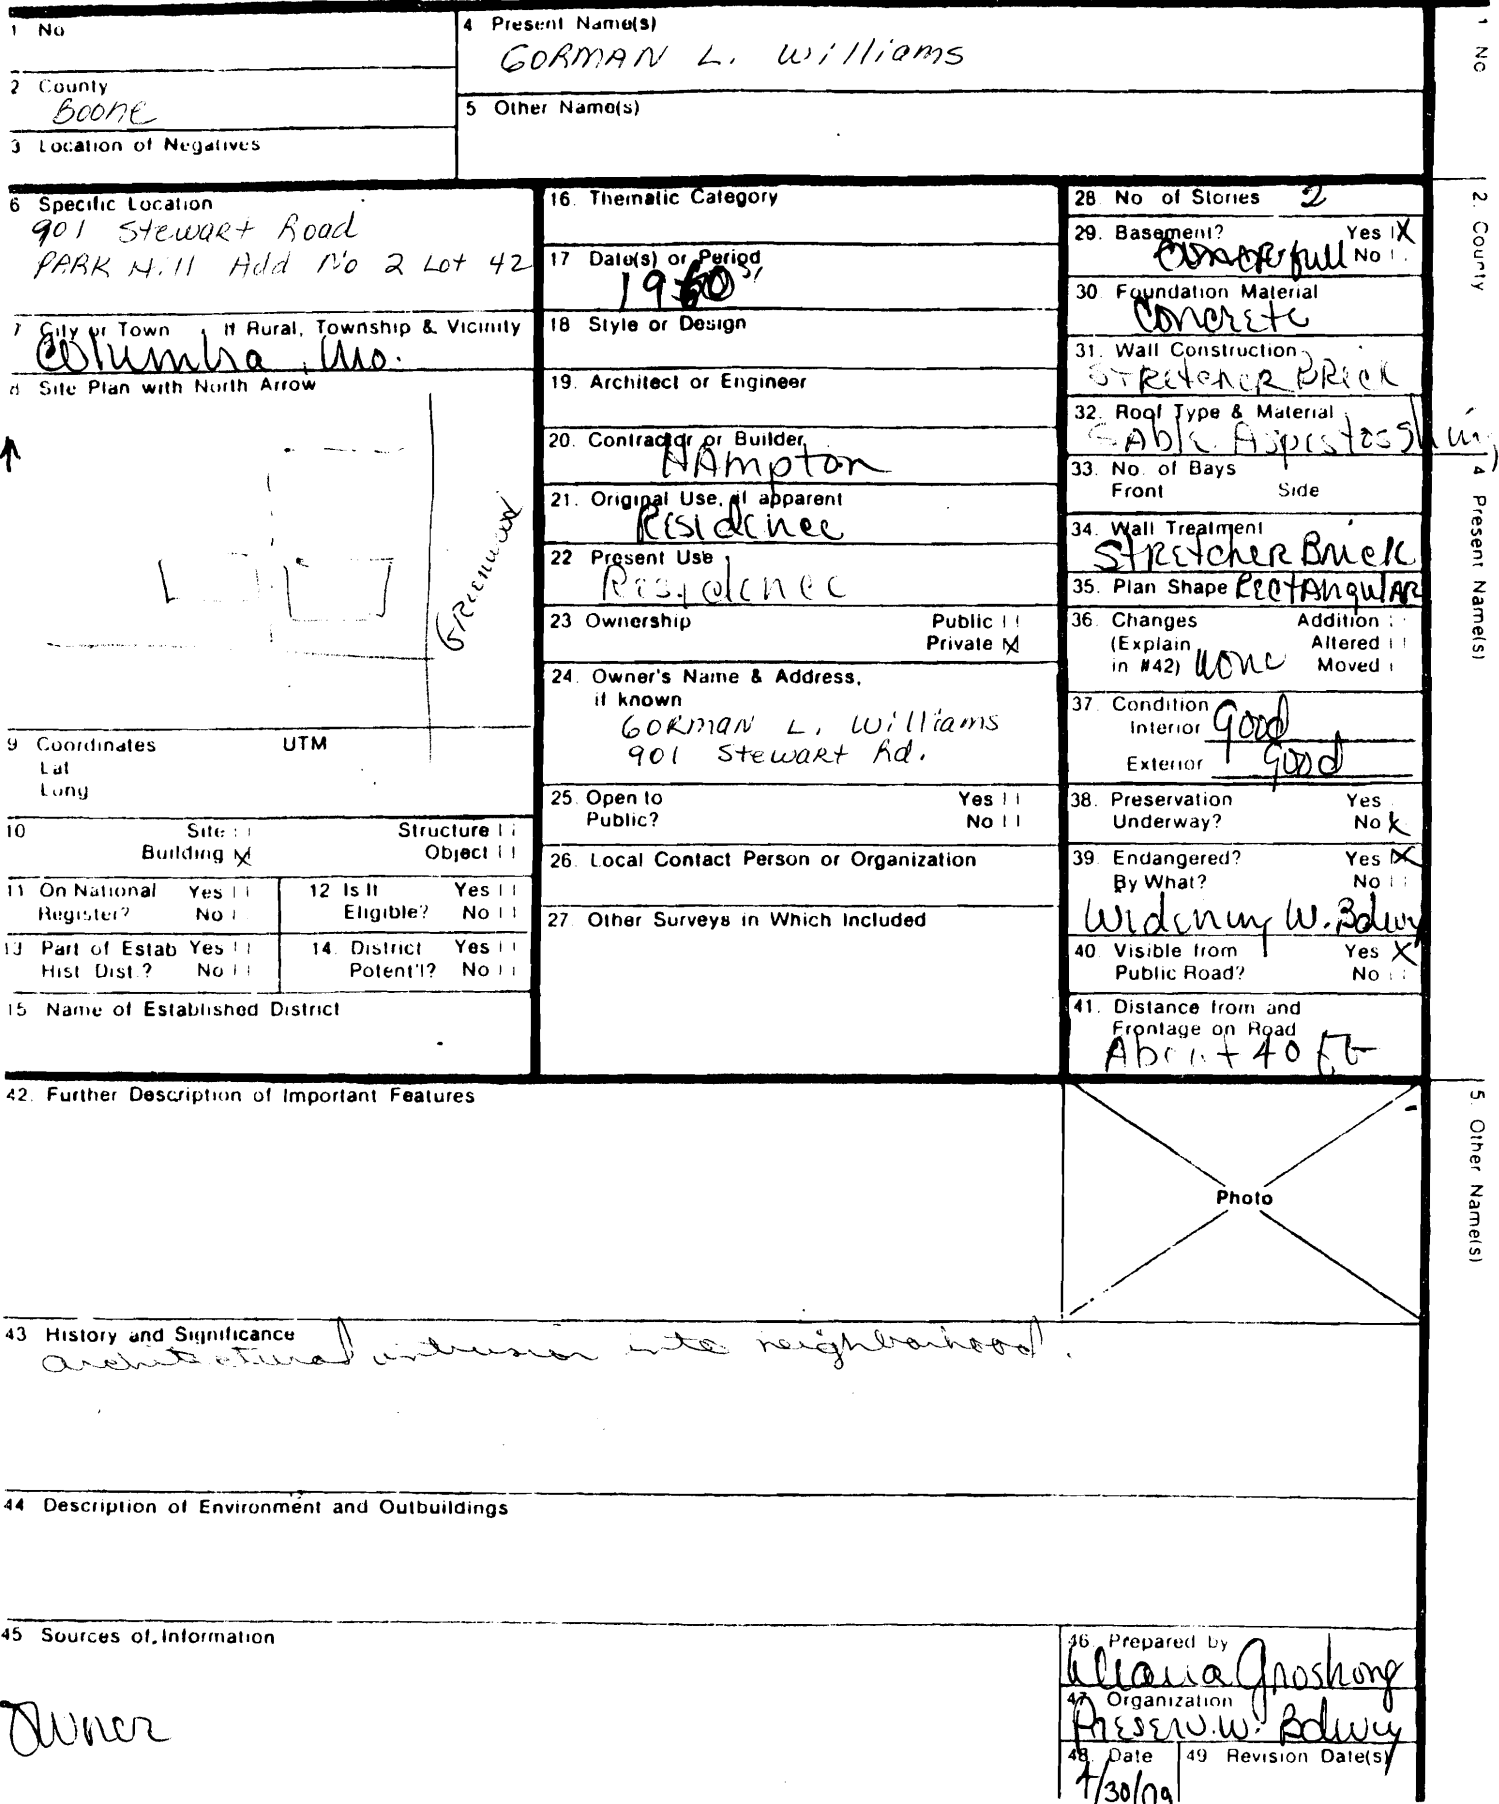 1 No
4 Present Name(s)
GORMAN L. Williams
2 County
Boone
5 Other Name(s)
3 Location of Negatives
6 Specific Location
901 Stewart Road
PARK Hill Add No 2 Lot 42
7 City or Town If Rural, Township & Vicinity
Columbia, Mo.
8 Site Plan with North Arrow
GREENWOOD
9 Coordinates UTM
Lat
Long
10 Site
Structure
Building X
Object
11 On National Register? Yes No
12 Is It Eligible? Yes No
13 Part of Estab Hist Dist.? Yes No
14. District Potent'l? Yes No
15 Name of Established District
16. Thematic Category
17 Date(s) or Period
18 Style or Design
19. Architect or Engineer
20. Contractor or Builder
HAmpton
21. Original Use, if apparent
Residence
22 Present Use
Residence
23 Ownership Public
Private X
24. Owner's Name & Address,
if known
GORMAN L. Williams
901 Stewart Rd.
25. Open to Yes
Public? No
26. Local Contact Person or Organization
27. Other Surveys in Which Included
28. No of Stories 2
29. Basement? Yes X
full No
30. Foundation Material
Concrete
31. Wall Construction
STRetcheR BRick
32. Roof Type & Material
33. No. of Bays
Front Side
34. Wall Treatment
STRetcheR Brick
35. Plan Shape RECTAngulAR
36. Changes Addition
(Explain Altered
in #42) none Moved
37. Condition
Interior Good
Exterior Good
38. Preservation Yes
Underway? No X
39. Endangered? Yes X
By What? No
Widening W. Bdwy
40. Visible from Yes X
Public Road? No
41. Distance from and
Frontage on Road
About 40 ft
42. Further Description of Important Features
Photo
43 History and Significance
architectural intrusion into neighborhood.
44 Description of Environment and Outbuildings
45 Sources of Information
Owner
46. Prepared by
Groshong
47. Organization
Preserv. W. Bdwy
48. Date
49 Revision Date(s)
1 No
2. County
4 Present Name(s)
5. Other Name(s)